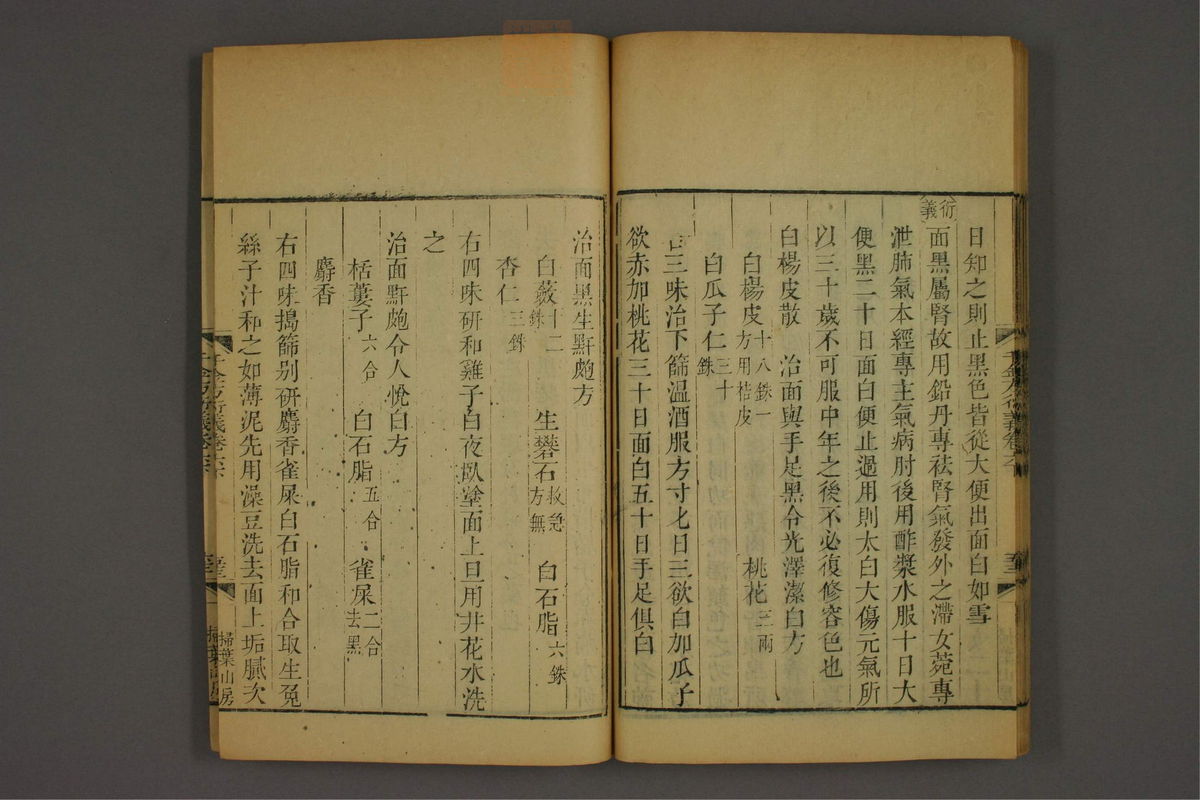 日知之則止黑色皆從大便出面白如雪
衍義
面黑屬腎故用鉛丹專祛腎氣發外之滯女菀專
泄肺氣本經專主氣病肘後用酢漿水服十日大
便黑二十日面白便止過用則太白大傷元氣所
以三十歲不可服中年之後不必復修容色也
白楊皮散 治面與手足黑令光澤潔白方
白楊皮十八銖一方用桔皮 桃花三兩
白瓜子仁三十銖
右三味治下篩溫酒服方寸匕日三欲白加瓜子
欲赤加桃花三十日面白五十日手足俱白
治面黑生䵟皰方
白蘞十二銖 生礜石救急方無 白石脂六銖
杏仁三銖
右四味研和雞子白夜臥塗面上旦用井花水洗
之
治面䵟皰令人悅白方
栝蔞子六合 白石脂五合 雀屎二合去黑
麝香
右四味搗篩别研麝香雀屎白石脂和合取生菟
絲子汁和之如薄泥先用澡豆洗去面上垢膩次
千金方衍義卷六
掃葉山房